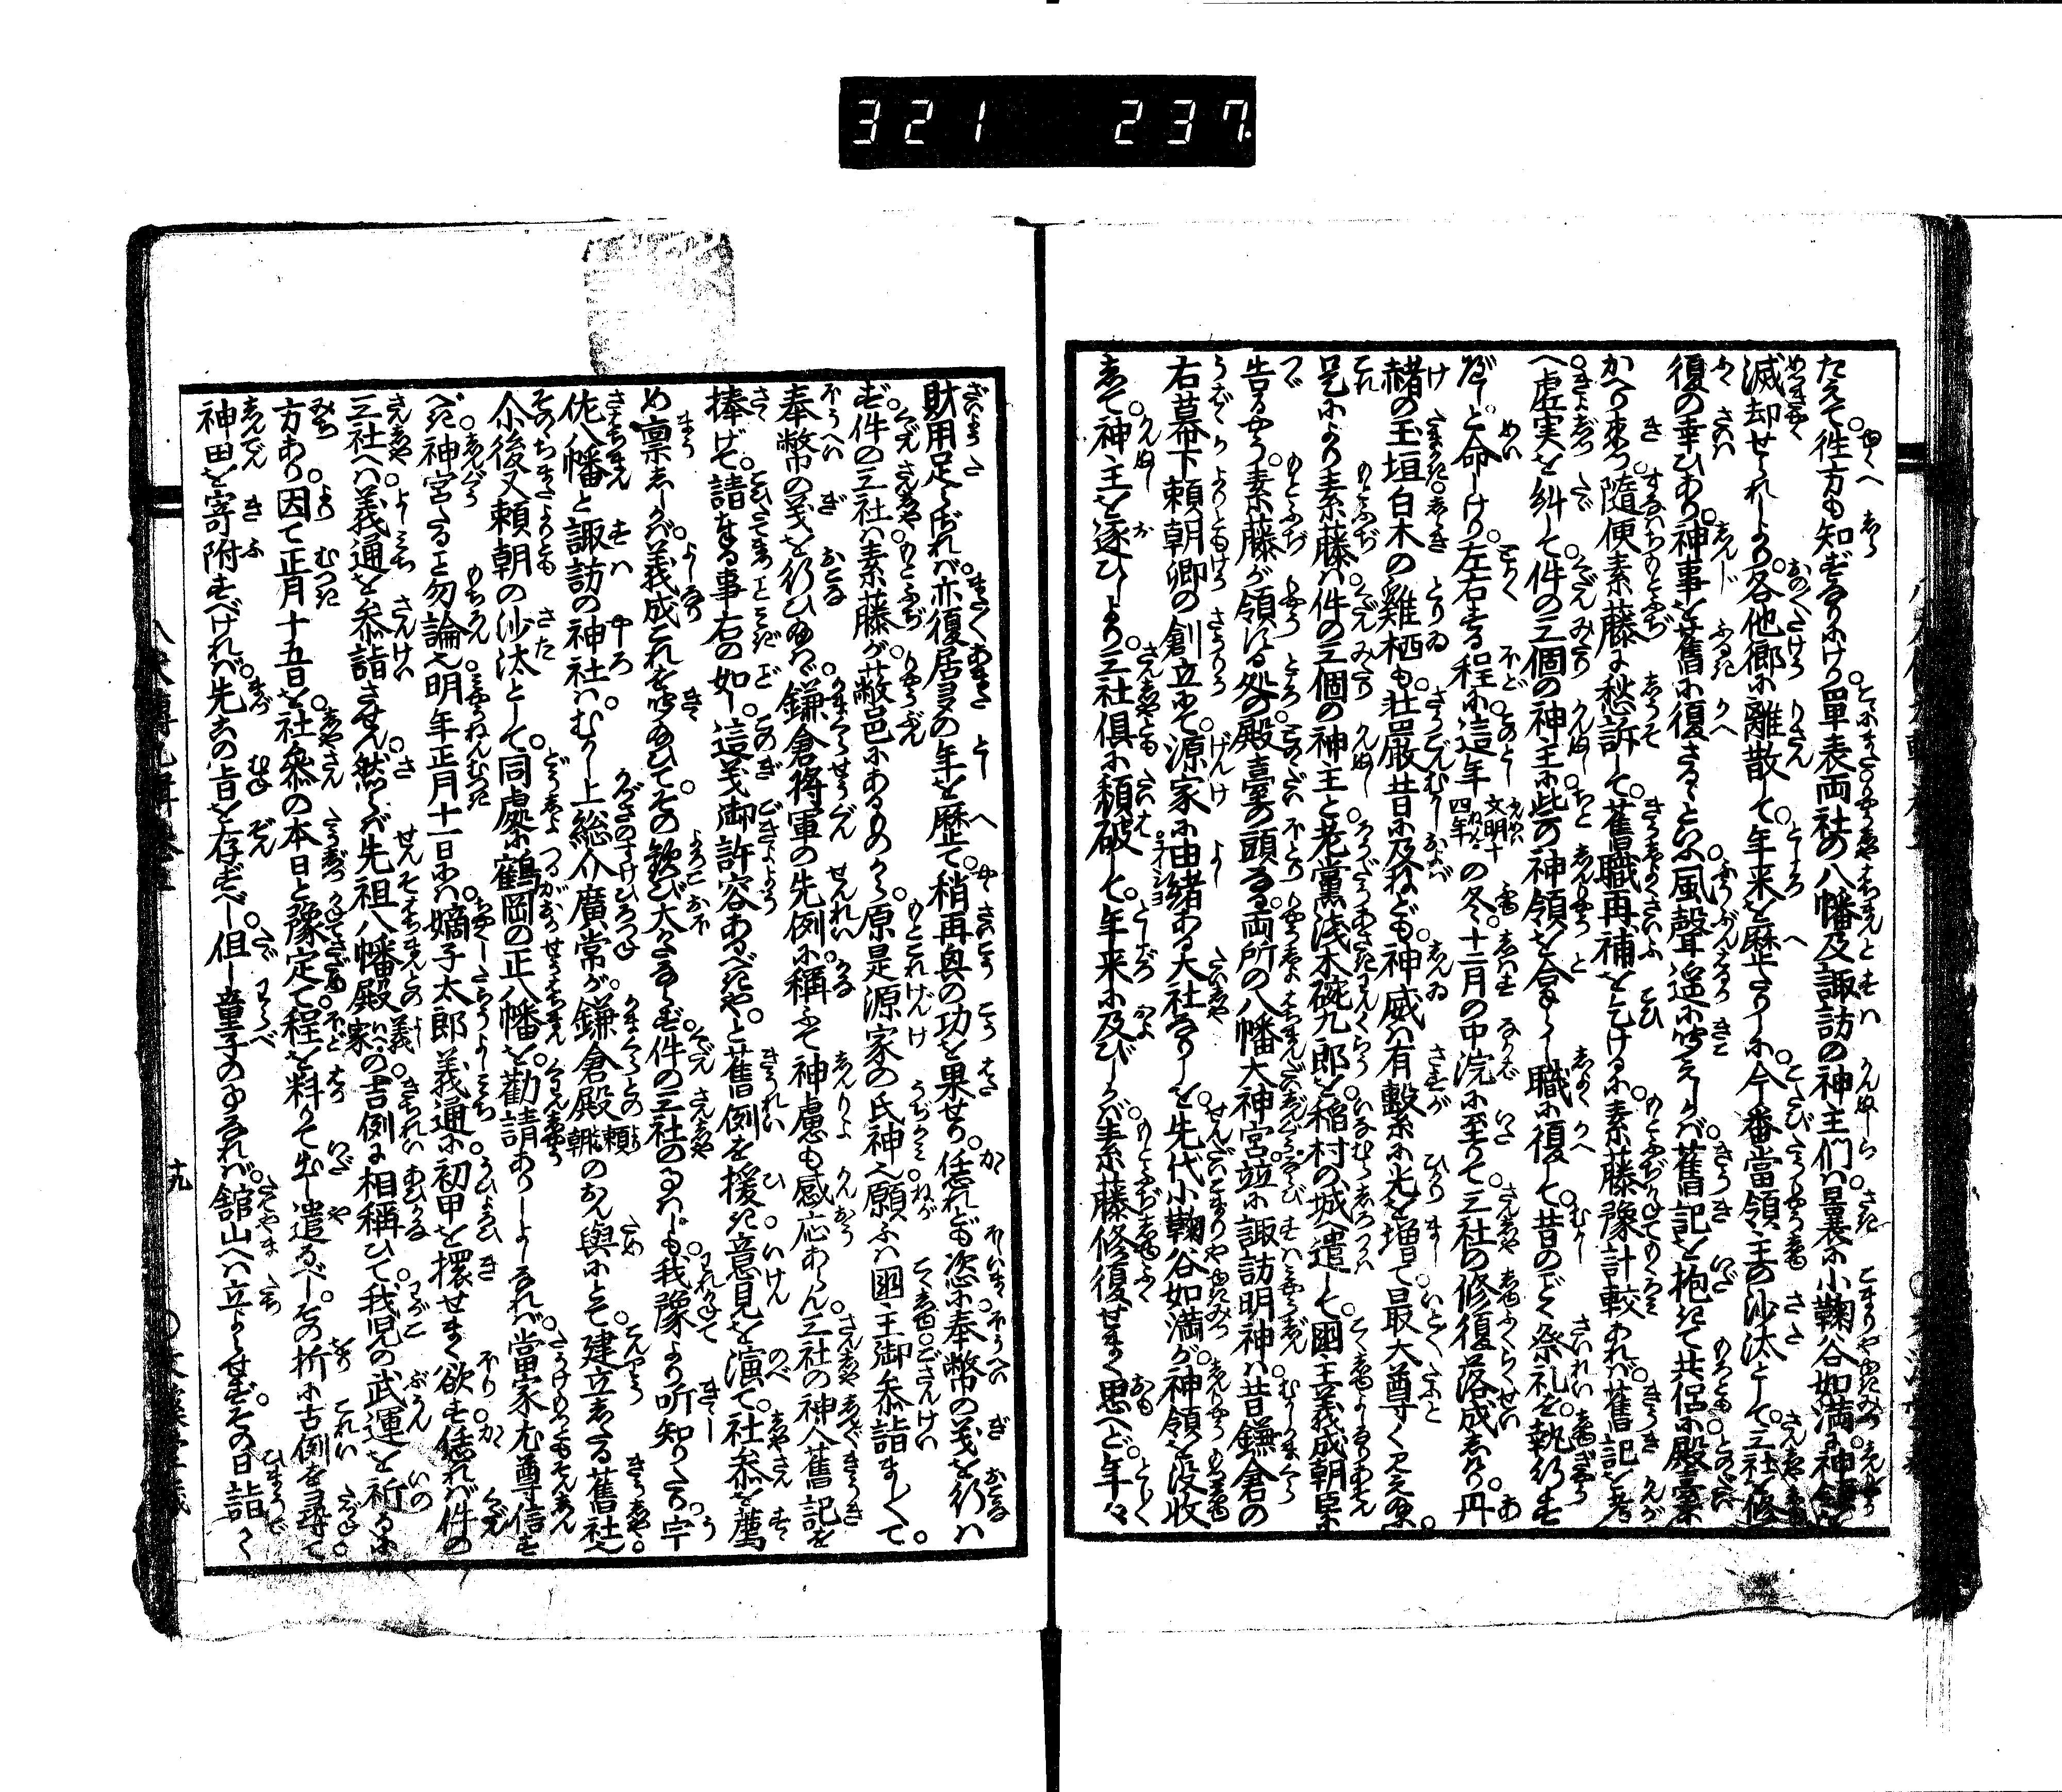 321 237
たえて。徃方も知ずなりにけり。單表両社の八幡及諏訪の神主們は。曩に小鞠谷如満に。神領を
滅却せられしより。各他郷に離散して。年来を歴たりしに。今番當領主の沙汰として。三社を修
復の幸ひあり。神事を舊に復さるゝといふ風聲遥に聞えしかば。舊記を抱きて共侶に。殿臺へ
かへり来つ。隨便素藤に愁訴して。舊職再補を乞けるに。素藤豫計較あれば。舊記を考
へ。虚実を糾して。件の三個の神主に。些の神領を合行ひ。職に復して。昔のごとく祭礼を執行す
べしと命じけり。左右する程に。這年文明十四年の冬。十二月の中浣に至りて。三社の修復落成しけり。丹
赭の玉垣白木の鷄栖も。壮嚴昔に及ねども。神威は有繋に光を増て。最大尊く見えにけり。
是により素藤は。件の三個の神主と。老黨浅木碗九郎を。稲村の城へ遣して。國主義成朝臣に
告るやう。素藤が領に。殿臺の頭なる。両所の八幡大神宮。並に諏訪明神は。昔鎌倉の
右幕下頼朝卿の創立にて。源家に由緒ある大社なりしを。先代小鞠谷如満が。神領を没收
して。神主を逐ひしより。三社俱に頽破して。年来に及びしかば。素藤修復せまく思へど。年々
財用足らざれば。亦復居多の年を歴て。稍再興の功を果せり。恁れども恣に。奉幣の義を行は
ず。件の三社は。素藤が敝邑にあるめから。原是源家の氏神也。願ふは國主御參詣ましまして。
奉幣の義を行ひ給はゞ。鎌倉將軍の先例に稱ふて。神慮も感応あらん。三社の神人舊記を
捧げて。請まをる事右の如し。這義御許容あるべきや。と舊例を援き。意見を演て。社參を薦
め稟ししかば。義成これを聞あひて。その歓び大かたならず。件の三社のよしは。我豫より听知りたる。宇
佐八幡と諏訪の神社は。むかし上総介廣常が。鎌倉殿頼朝のおん與にとて。建立したる舊社也。
尒後又頼朝の沙汰として。同處に鶴岡の正八幡を。勧請ありしよしなれば。當家尤尊信す
べき。神宮なること勿論也。明年正月十一日には。嫡子太郎義通に。初甲を擐せまく欲す。恁れば件の
三社へは。義通を參詣させん。然らば先祖八幡殿義家いへの吉例に相稱ひて。我児の武運を祈るに
方あり。因て正月十五日を。社參の本日と豫定て。程を料りて出し遣るべし。その折に古例を尋て。
神田を寄附すべければ。先その旨を存ずべし。但し童子のよなれば。舘山へは立よらせず。その日詣て
十九